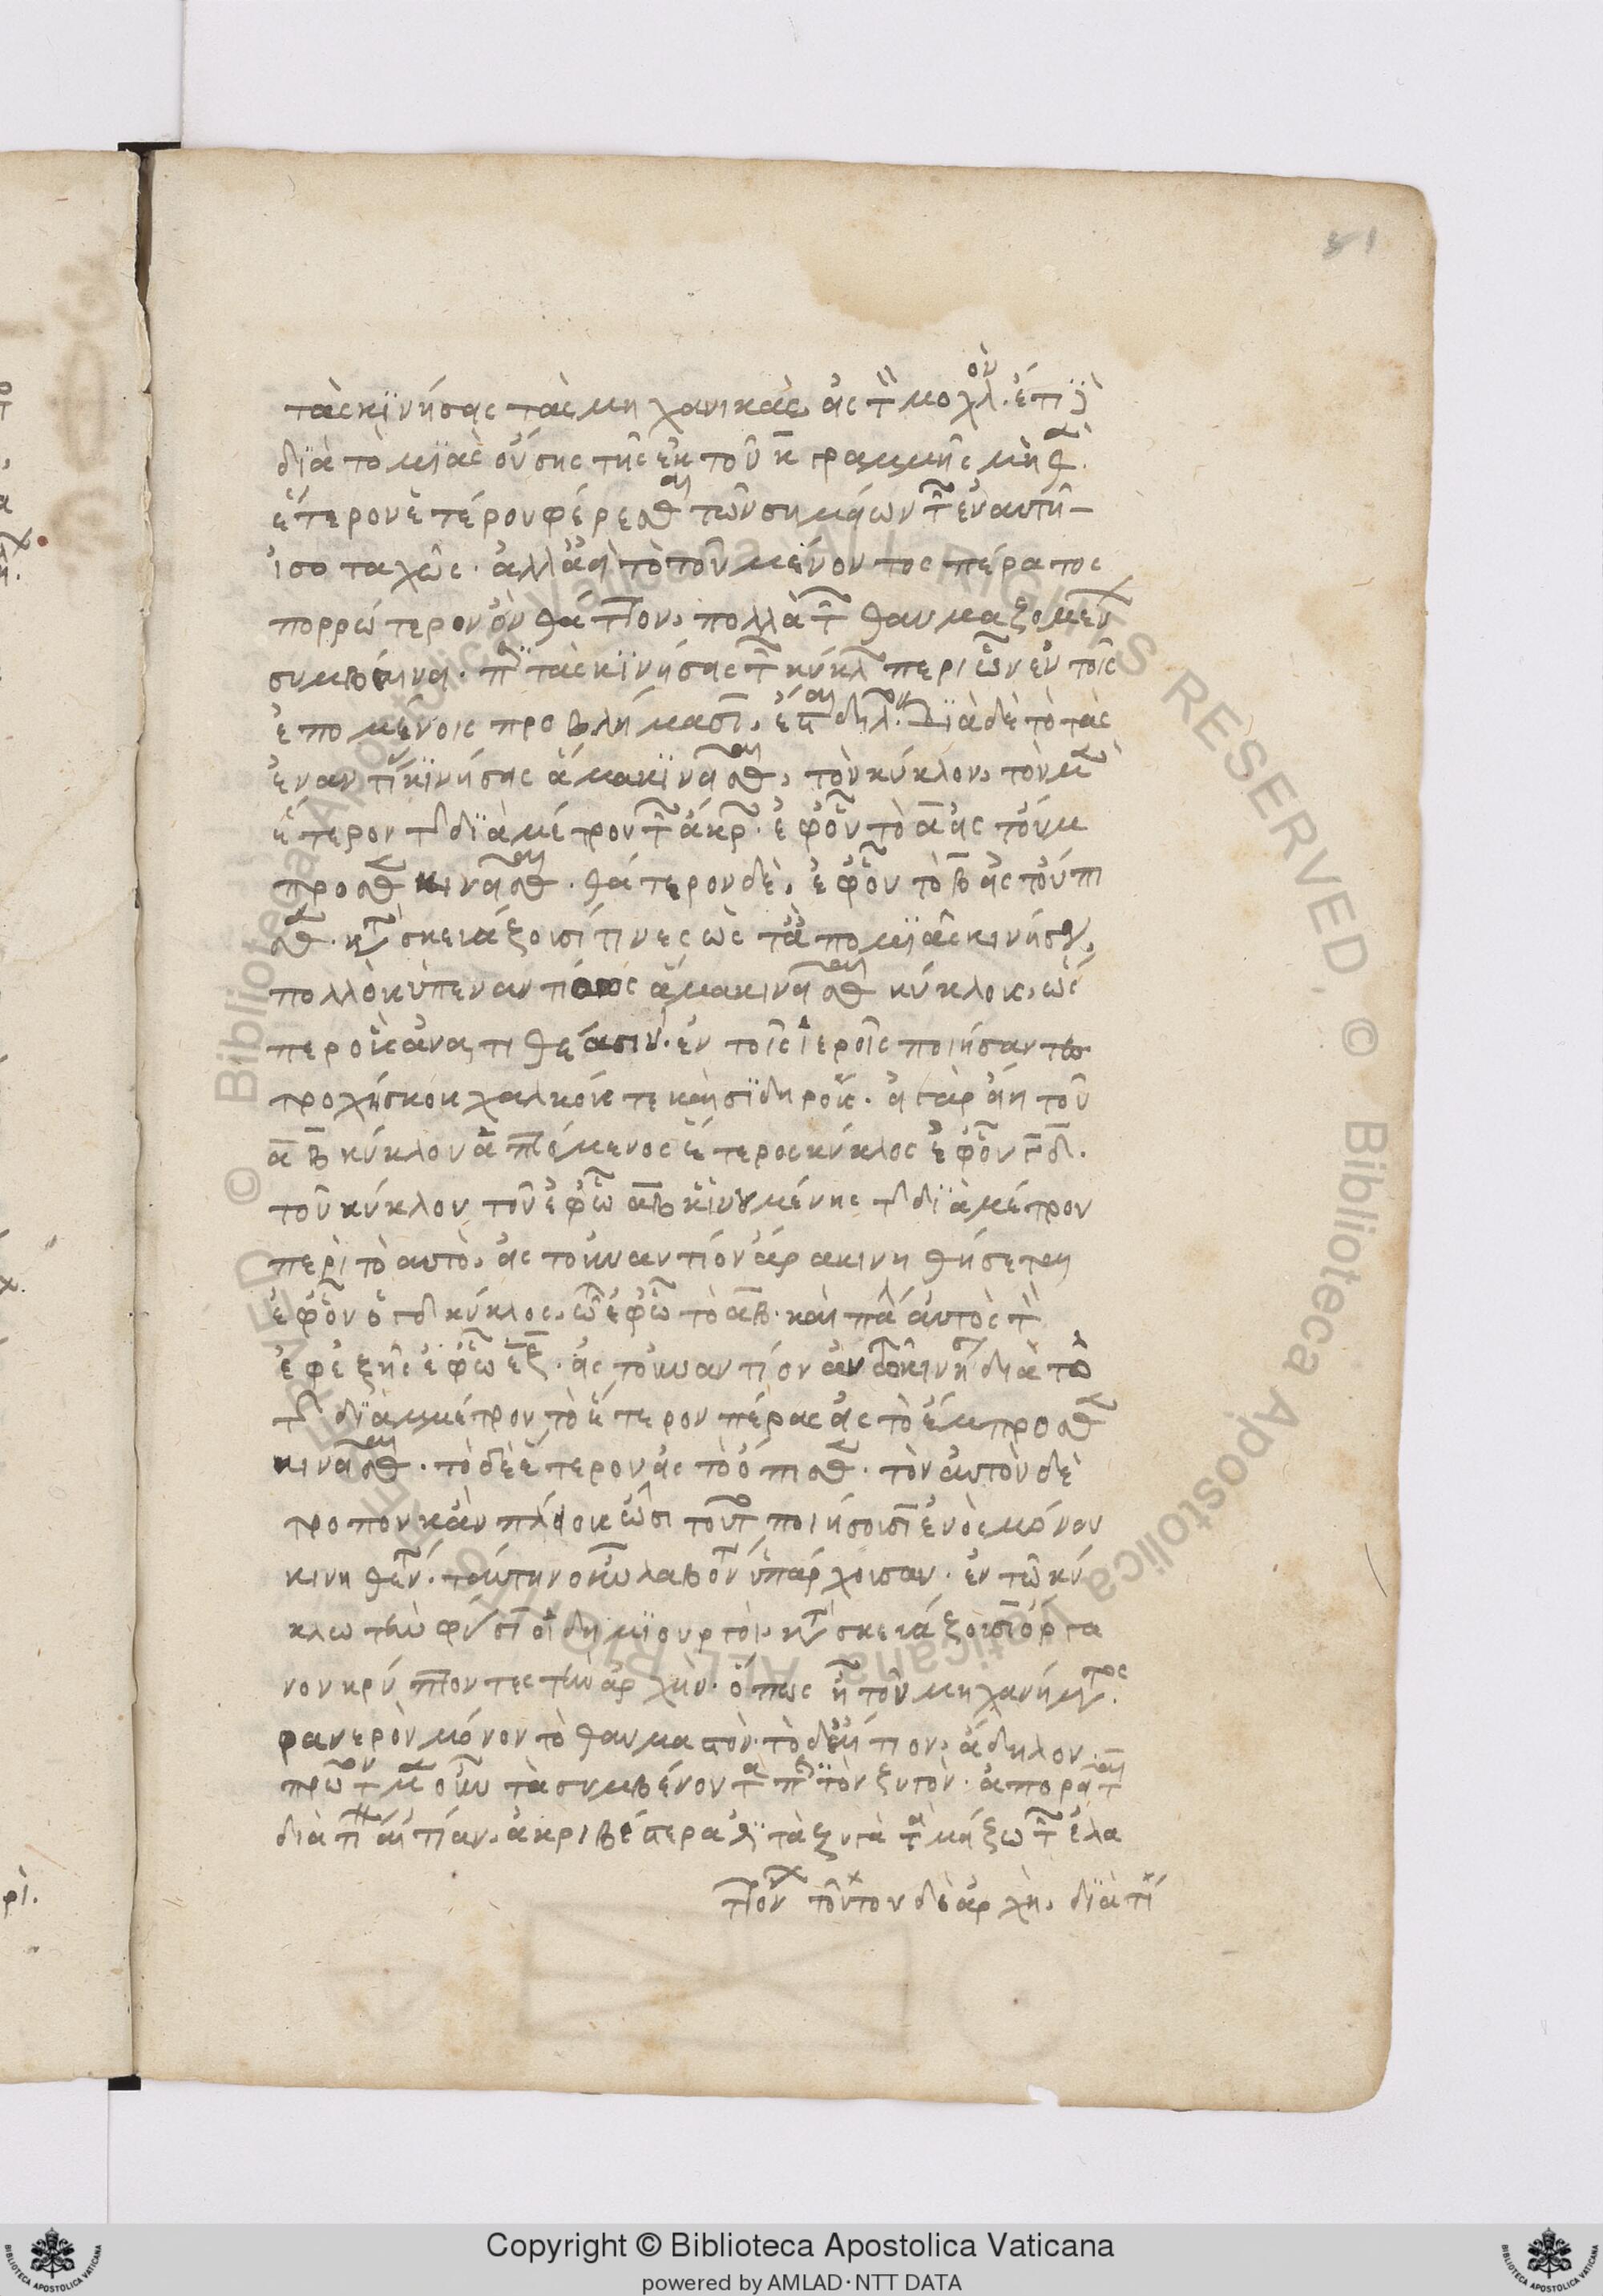 51
τὰς κϊνήσεις τὰς μηχανικὰς εἰς τὸν μοχλόν. ἔτι δὲ
δϊὰ τὸ μϊᾶς οὔσης τῆς ἐκ τοῦ κ γραμμῆς μηθὲν
ἕτερον ἑτέρου φέρεσθαι τῶν σημείων τῶν ἐν αὐτῆ
ἰσοταχῶς. ἀλλ' ἀεὶ τὸ τοῦ μένοντος πέρατος
πορρώτερον ὂν θᾶττον, πολλὰ τῶν θαυμαζομένων
συμβαίνει περὶ τὰς κϊνήσεις τῶν κύκλων περὶ ὧν ἐν τοῖς
ἑπομένοις προβλήμασιν ἔσται δῆλον. Δϊὰ δὲ τὸ τὰς
ἐναντίας κϊνήσεις ἅμα κϊνεῖσθαι, τὸν κύκλον, τὸ μὲν
ἕτερον τῆς δϊαμέτρου τῶν ἄκρων ἐφ' οὗ τὸ α εἰς τοὔμ
προσθεν κινεῖσθαι. θάτερον δὲ, ἐφ' οὗ τὸ β εἰς τοὔπι
σθεν. κατασκευάζουσί τινες ὡς τ' ἀπὸ μϊᾶς κινήσεως,
πολλοὺς ὑπεναντίους ἅμα κινεῖσθαι κύκλους, ὥς
περ οὓς ἀνατιθέασιν ἐν τοῖς ἱεροῖς ποιήσαντες
τροχίσκους χαλκοῦς τε καὶ σϊδηροῦς. εἰ γὰρ εἴη τοῦ
α β κύκλου ἁπτόμενος ἕτερος κύκλος ἐφ' οὗ γδ.
τοῦ κύκλου τοῦ ἐφ' ὧ αβ κϊνουμένης τῆς δϊαμέτρου
περὶ τὸ αὐτὸ, εἰς τοὐναντίον ἄρα κινηθήσεται
ἐφ' οὗ ὁ γδ κύκλος, τῶ ἐφ' ὧ τὸ αβ. καὶ πάλιν αὐτὸς τὸν
ἐφεξῆς ἐφ' ὧ εζ. εἰς τοὐναντίον αὐτῶ κινήσει διὰ τὸ
τῆς δϊαμμέτρου τὸ ἕτερον πέρας εἰς τὸ ἔμπροσθεν
κινεῖσθαι. τὸ δὲ ἕτερον εἰς τὸ ὄπισθεν. τὸν αὐτὸν δὲ
τρόπον κἂν πλείους ὦσι τοῦτο ποιήσουσιν ἑνὸς μόνου
κινηθέντος. ταύτην οὖν λαβόντες ὑπάρχουσαν ἐν τῶ κύ
κλω τὴν φύσιν οἱ δημϊουργοὶ, κατασκευάζουσιν ὄργα
νον κρύπτοντες τὴν ἀρχὴν. ὅπως ἦ τοῦ μηχανήματος
φανερὸν μόνον τὸ θαυμαστὸν τὸ δ' αἴτιον, ἄδηλον.
πρῶτον μὲν οὖν τὰ συμβαίνοντα περὶ τὸν ζυγὸν ἀπορεῖται
διὰ τίν' αἰτίαν, ἀκριβέστερα ἐστὶ τὰ ζυγὰ τὰ μείζω τῶν ἐλα
ττόνων τούτου δὲ ἀρχὴ, δϊὰ τί